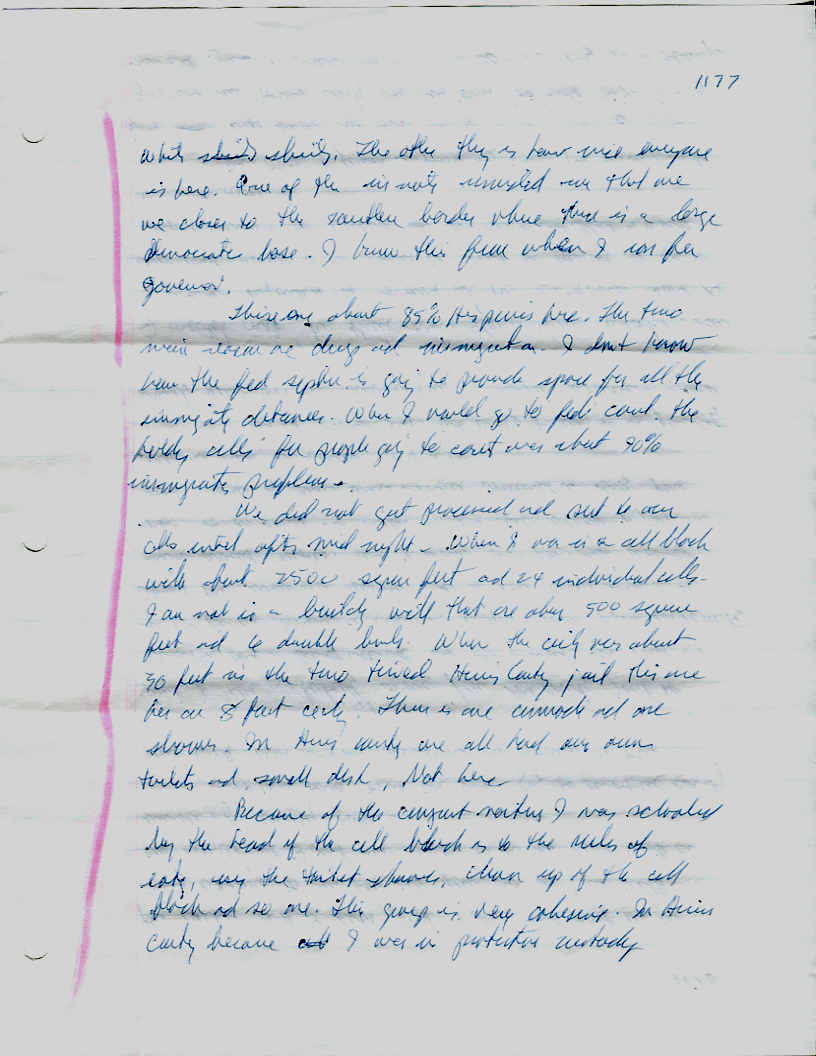 1177
White shirts. The other thing is how nice everyone
is here. One of the inmates reminded me that we
we closer to the southern border where there is a large
democratic base. I know this from when I ran for
governor.
There are about 85% Hispanics here. The two
main reason are drugs and immigration. I don't know
how the fed system is going to provide space for all the
immigrants detainees. When I would go to fed court the
holding cells for people going to court was about 90%
immigrants problems.
We did not get processed and sent to our
cells until after mid night. When I was in a cell block
with about 2500 square feet and 24 individual cells.
I am not in a building with that are about 500 square
feet and 6 double bunks. When the ceiling was about
30 feet in the two tiered Harris County jail this one
has an 8 foot ceiling. There is one commode and one
shower. In Harris county we all had our own
toilets and small desk, Not here
Because of the cramped I was schooled
by the head of the cell block as to the rules of
eating, using the toilet shower, clean up of the cell
block and so one. This group is very cohesive. In Harris
County because I was in protective custody